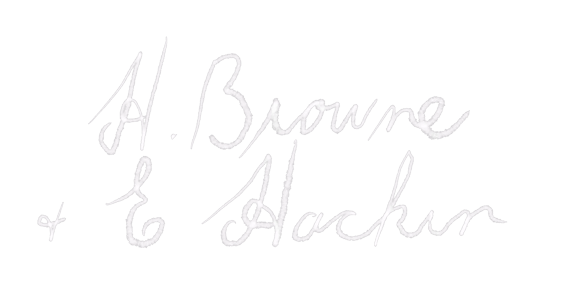 H. Browne
& E Hackin